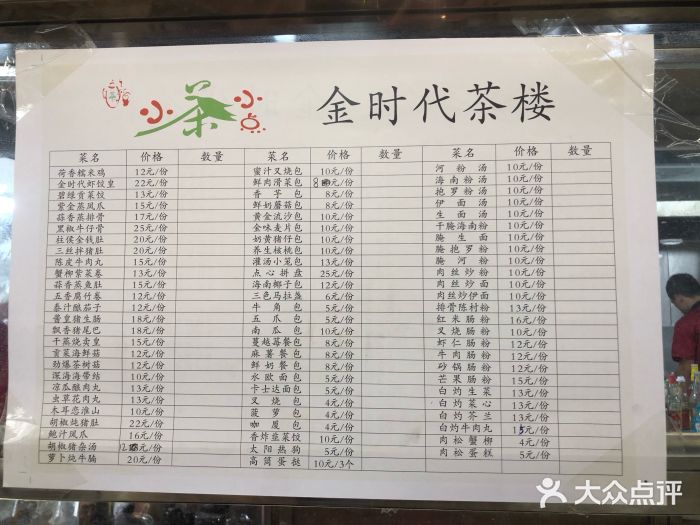 小茶小点
金时代茶楼
菜名 价格 数量 菜名 价格 数量 菜名 价格 数量
荷香糯米鸡 12元/份 蜜汁叉烧包 10元/份 河粉汤 10元/份
金时代虾饺皇 22元/份 鲜肉滑菜包 8元/份 海南粉汤 10元/份
碧绿贡菜饺 13元/份 香芋包 8元/份 抱罗粉汤 10元/份
紫金蒸凤爪 15元/份 鲜奶蘑菇包 8元/份 伊面汤 10元/份
蒜香蒸排骨 17元/份 黄金流沙包 10元/份 生面汤 10元/份
黑椒牛仔骨 25元/份 金味麦片包 10元/份 干腌海南粉 10元/份
柱侯金钱肚 20元/份 奶黄猪仔包 10元/份 腌生面 10元/份
三丝拌猪肚 20元/份 养生核桃包 10元/份 腌抱罗粉 10元/份
陈皮牛肉丸 15元/份 灌汤小笼包 13元/份 腌河粉 10元/份
蟹柳紫菜卷 13元/份 点心拼盘 25元/份 肉丝炒粉 10元/份
蒜香蒸鱼肚 15元/份 海南椰子包 12元/份 肉丝炒面 10元/份
五香腐竹卷 12元/份 三色马拉盏 6元/份 肉丝炒伊面 10元/份
泰汁酿茄子 12元/份 牛角包 5元/份 排骨陈村粉 13元/份
酱皇猪生肠 18元/份 五爪包 5元/份 红米肠粉 16元/份
飘香猪尾巴 18元/份 南瓜包 10元/份 叉烧肠粉 10元/份
干蒸烧卖皇 15元/份 蔓越莓餐包 8元/份 虾仁肠粉 12元/份
贡菜海鲜菇 12元/份 麻薯餐包 8元/份 牛肉肠粉 12元/份
劲爆茶树菇 12元/份 鲜奶餐包 8元/份 砂锅肠粉 12元/份
深海海带结 10元/份 水欧面包 5元/份 芒果肠粉 15元/份
凉瓜酿肉丸 13元/份 卡士达面包 5元/份 白灼生菜 13元/份
虫草花肉丸 13元/份 叉烧包 4元/份 白灼菜心 13元/份
木耳恋淮山 10元/份 菠萝包 4元/份 白灼芥兰 13元/份
胡椒炖猪肚 22元/份 咖厦包 4元/份 白灼牛肉丸 15元/份
鲍汁凤爪 16元/份 香炸韭菜饺 10元/份 肉松蟹柳 4元/份
胡椒猪杂汤 12元/份 太阳热狗 5元/份 肉松蛋糕 5元/份
萝卜炆牛腩 20元/份 高筒蛋挞 10元/3个
大众点评